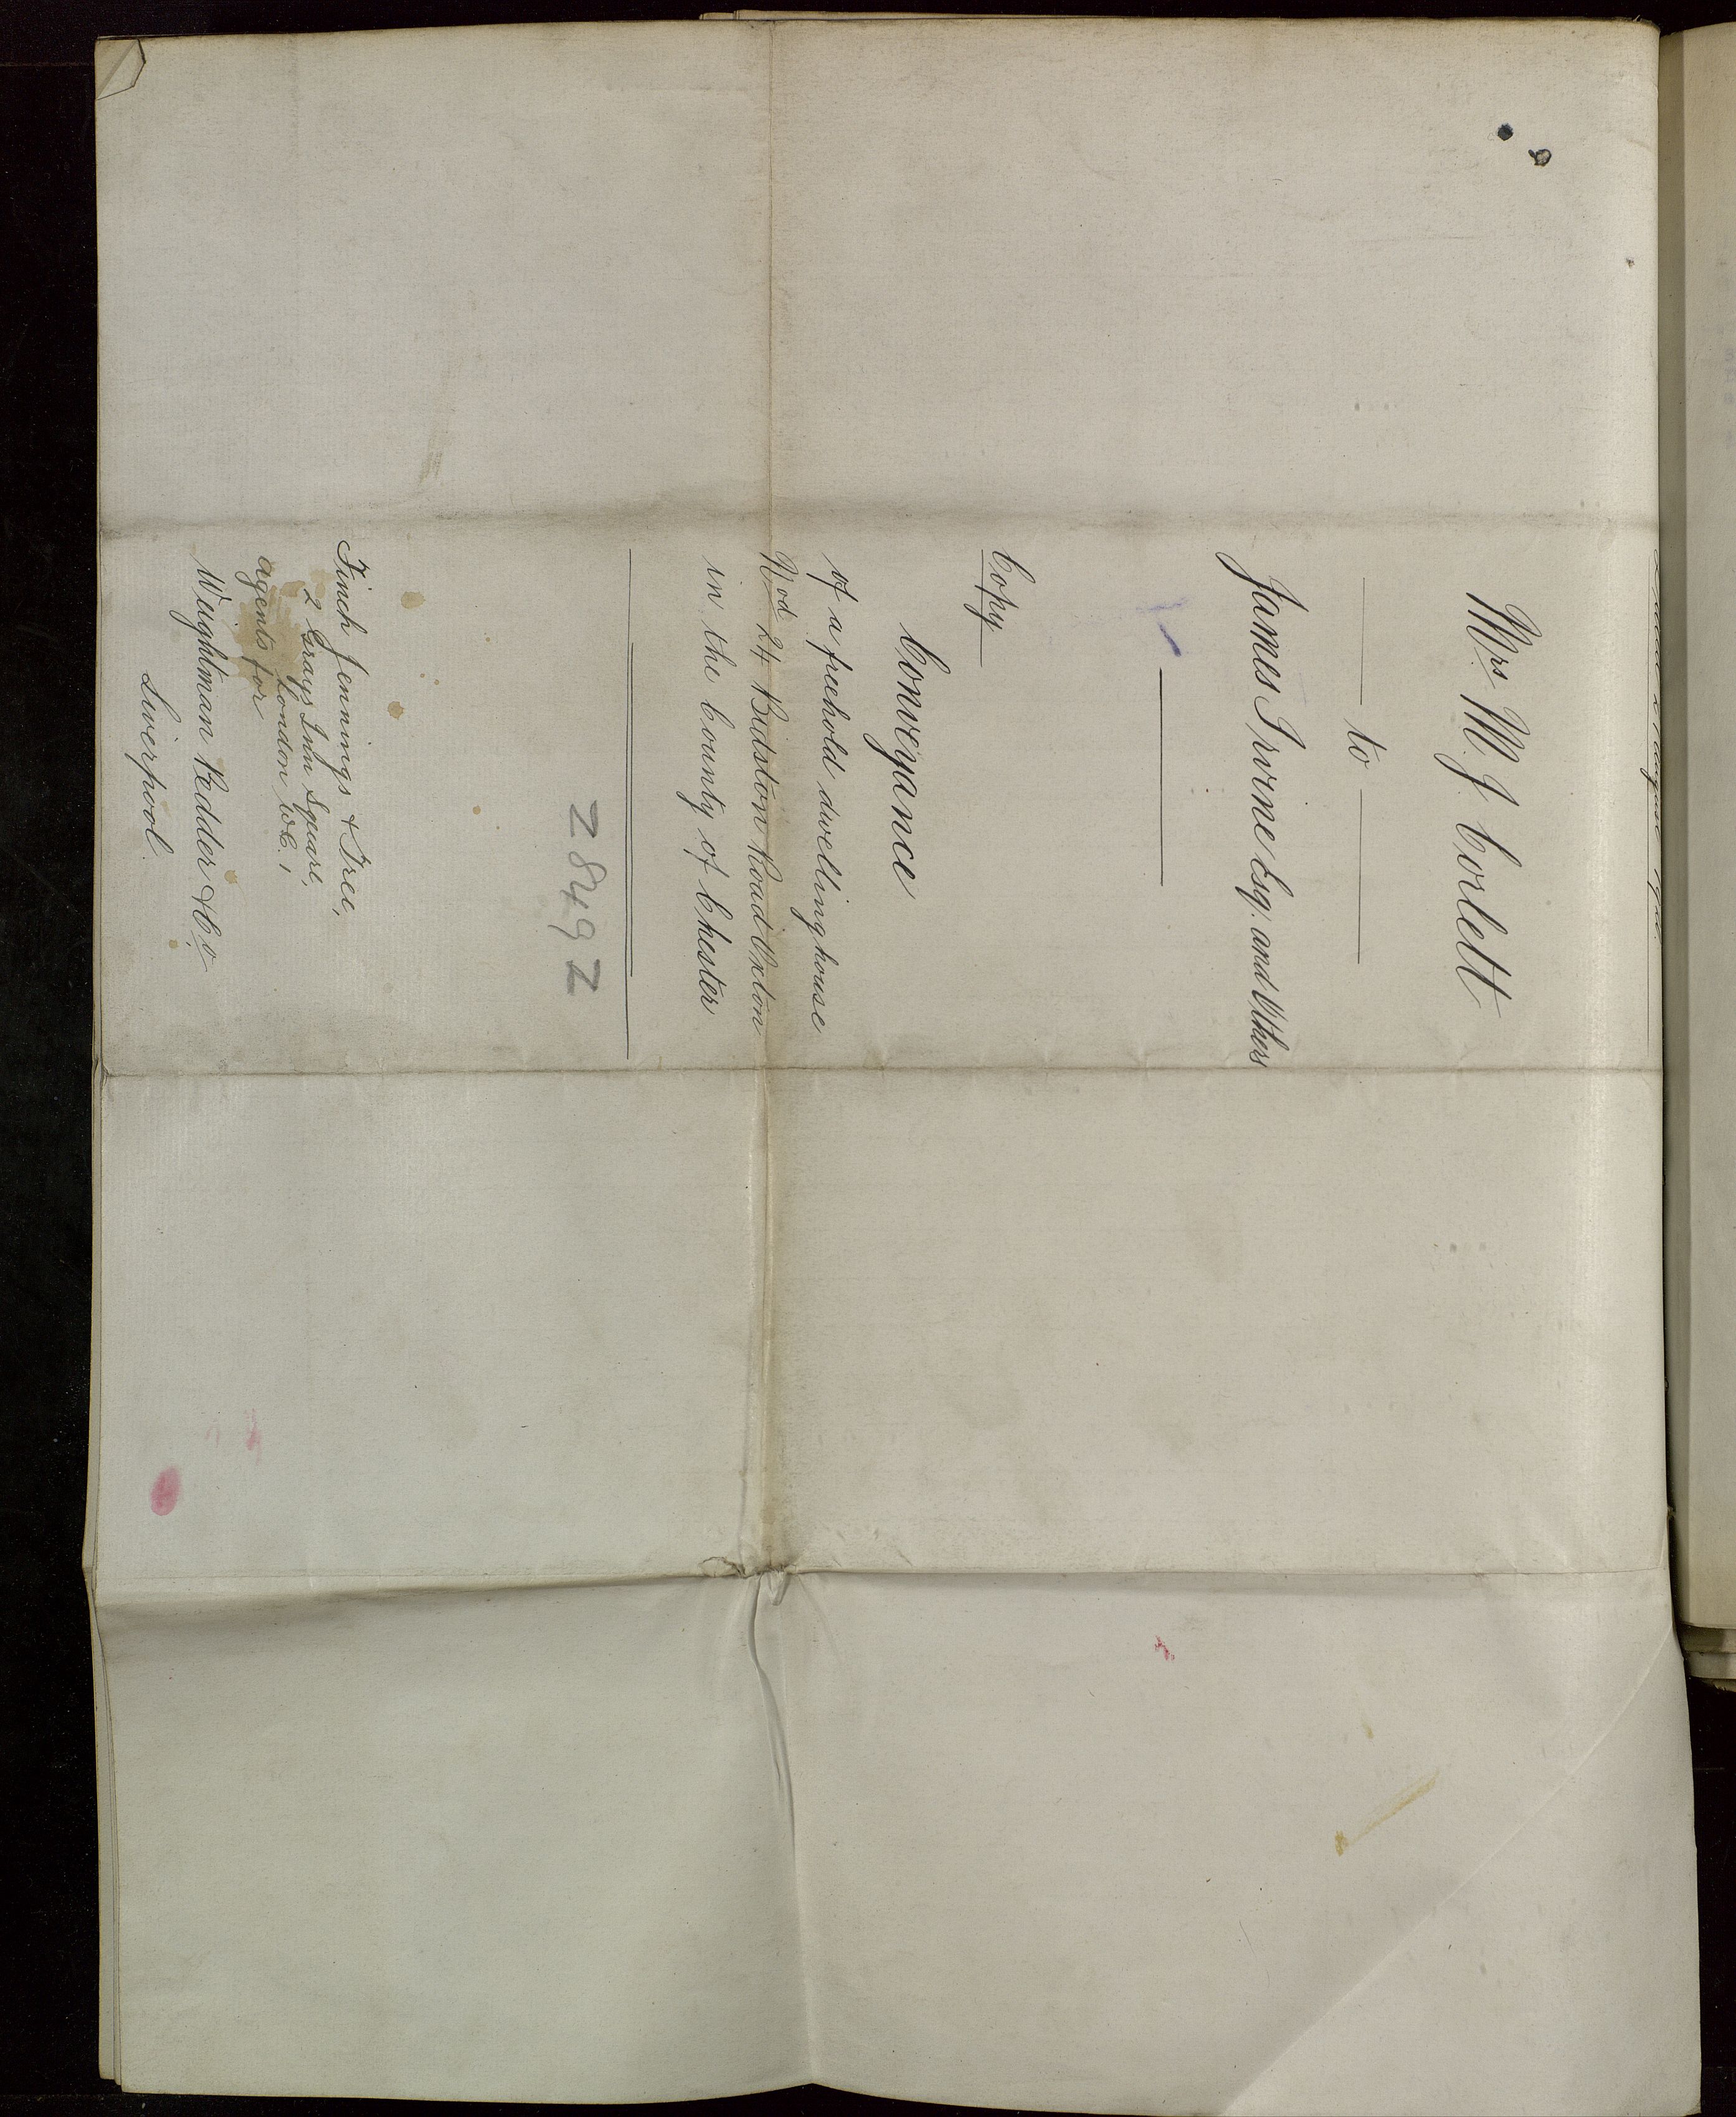 Mrs M. J. Corlett
to
James Irvine Esq. and Others
Copy
Conveyance
of a freehold dwellinghouse
Nod 24 Bidston Road Oxton
in the County of Chester
28492
Finch Jennings & Tree,
2 Grays Inn Square,
London W.C.1
agents for
Weightman Pedder & Co.
Liverpool.